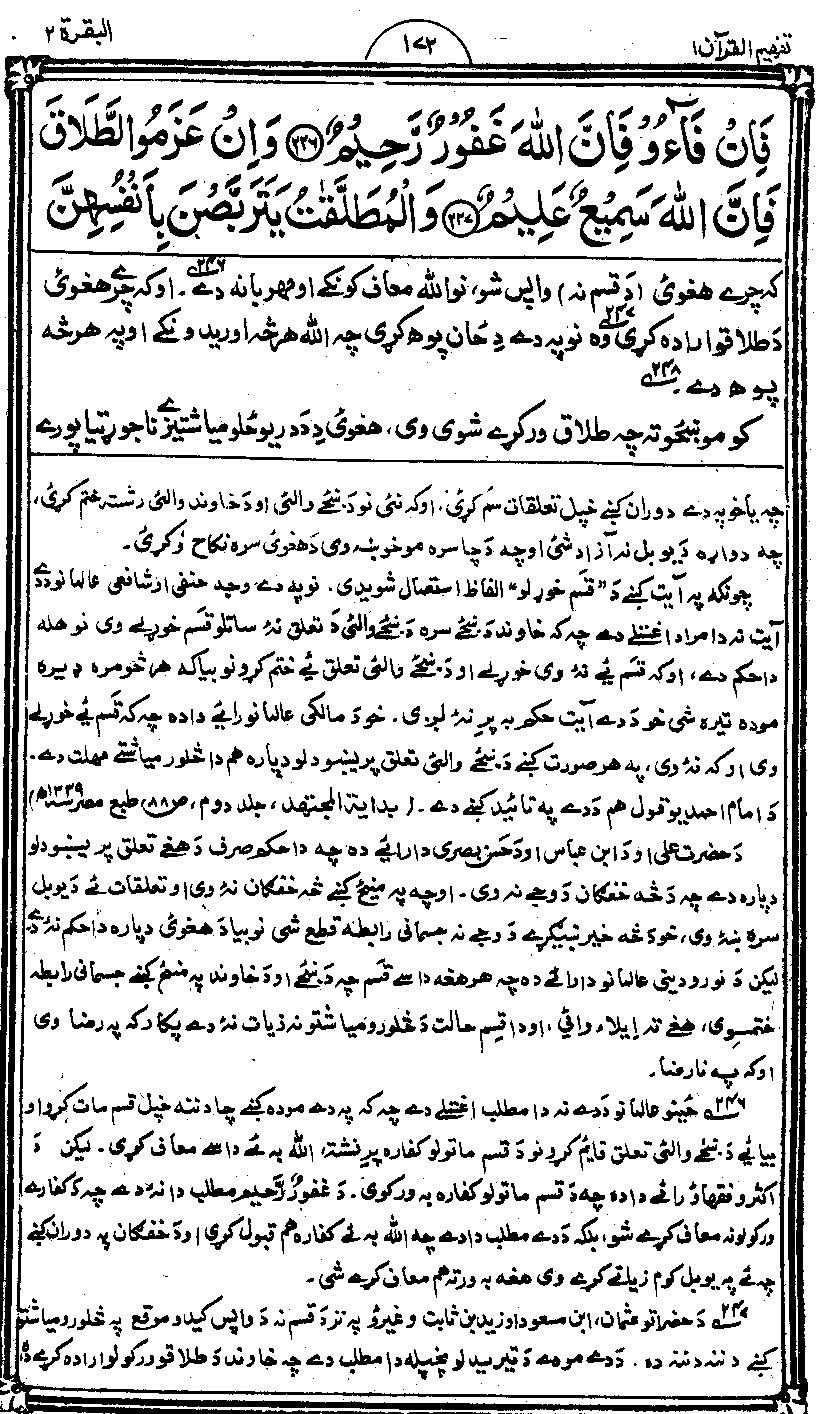 تفہیم القرآن ۱ ۱۷۲ البقرة ۲
فَاِنْ فَآءُوْ فَاِنَّ اللّٰهَ غَفُوْرٌ رَّحِيْمٌ ﴿۲۲۶﴾ وَاِنْ عَزَمُوا الطَّلَاقَ
فَاِنَّ اللّٰهَ سَمِيْعٌ عَلِيْمٌ ﴿۲۲۷﴾ وَالْمُطَلَّقٰتُ يَتَرَبَّصْنَ بِاَنْفُسِهِنَّ
که چرے هغوئ (دَ قسم نه) واپس شو، نو الله معاف کونکے او مهربانه دے ۲۴۶۔ او که چرے هغوئ
دَ طلاقو اراده کړی وه ۲۴۷ نو په دے دِ ځان پوه کړی چه الله هر څه اوریدونکے او په هر څه
پوهه دے ۲۴۸۔
کومو ښځو ته چه طلاق ورکړے شوی وی، هغوئ دِ دَ دریو ځلو میاشتے ناجوړتیا پورے
چه یا خو په دے دوران کښے خپل تعلقات سم کړئ، او که نئی نو دَ ښځے والئی او دَ خاوند والئی رشته ختم کړئ،
چه دواره دَ یو بل نه آزاد شئ او چه دَ چا سره مو خوښه وی دَ هغوئ سره نکاح وُکړئ۔
چونکه په آیت کښے دَ "قسم خورلو" الفاظ استعمال شویدی۔ نو په دے وجه حنفی او شافعی عالمانو دَ دے
آیت نه دا مراد اغستلے دے چه که خاوند دَ ښځے سره دَ ښځے والئی دَ تعلق نۀ ساتلو قسم خورلے وی نو هله
دا حکم دے، او که قسم یٔے نۀ وی خورلے او دَ ښځے والئی تعلق یٔے ختم کړو نو بیا که هر څومره ډیره
موده تیره شی خو دَ دے آیت حکم به پرِ نۀ لږیدی۔ خو دَ مالکی عالمانو رائے دا ده چه که قسم یٔے خورلے
وی او که نۀ وی، په هر صورت کښے دَ ښځے والئی تعلق پریښودلو دپاره هم دا څلور میاشتے مهلت دے۔
دَ امام احمد یو قول هم دَ دے په تائید کښے دے۔ (بدایة المجتهد، جلد دوم، ص ۸۸، طبع مصر ۱۳۳۹ھ)
دَ حضرت علی او دَ ابن عباس او دَ حسن بصری دا رائے ده چه دا حکم صرف دَ هغے تعلق پریښودلو
دپاره دے چه دَ څه خفګان دَ وجے نه وی۔ او چه په مینځ کښے څه خفګان نۀ وی او تعلقات یٔے دَ یو بل
سره ښۀ وی، خو دَ څه خیر ښیګړے دَ وجے نه جسمانی رابطه قطع شی نو بیا دَ هغوئ دپاره دا حکم نۀ دے
لیکن دَ نورو دینی عالمانو دا رائے ده چه هر هغه داسے قسم چه دَ ښځے او دَ خاوند په منځ کښے جسمانی رابطه
ختموی، هغے ته إیلاء وائی، او دا قسم حالت دَ څلورو میاشتو نه زیات نۀ دے پکار که په رضا وی
او که په نارضا۔
۲۴۶ ځینو عالمانو دَ دے نه دا مطلب اغستلے دے چه که په دے موده کښے چا دننه خپل قسم مات کړو او
بیا یٔے دَ ښځے والئی تعلق قایٔم کړو نو دَ قسم ماتولو کفاره پرِ نشته، الله به یٔے داسے معاف کړی۔ لیکن دَ
اکثرو فقهاؤ رائے دا ده چه دَ قسم ماتولو کفاره به ورکوی۔ دَ غَفُوْرٌ رَّحِيْم مطلب دا نۀ دے چه دَ کفارے
ورکولو نه معاف کړے شو، بلکه دَ دے مطلب دا دے چه الله به یٔے کفاره هم قبول کړی او دَ خفګان په دوران کښے
چه یٔے په یو بل کوم زیاتے کړے وی هغه به ورته هم معاف کړے شی۔
۲۴۷ دَ حضراتو عثمان، ابن مسعود او زید بن ثابت و غیرؤ په نزد دَ قسم نه دَ واپس کیدو موقع په څلورو میاشتو
کښے دننه دننه ده۔ دَ دے مودے دَ تیریدلو مخپله دا مطلب دے چه خاوند دَ طلاق ورکولو اراده کړے ده